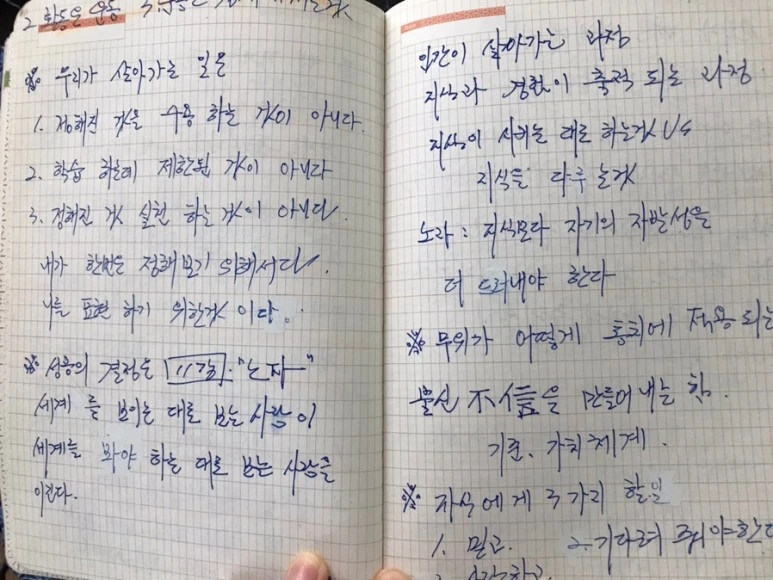 2. 활동은 운동
※ 우리가 살아가는 일은
1. 정해진 것을 수용 하는 것이 아니다.
2. 학습 하는데 제한된 것이 아니다
3. 정해진 것 실천 하는 것이 아니다.
내가 한번 정해보기 위해서다.
나를 표현 하기 위한것 이다.
※ 성공의 결정은 "노자"
세계 를 보이는 대로 보는 사람이
세계를 봐야 하는 대로 보는 사람을
이긴다.
인간이 살아가는 과정
지식과 경험이 축적 되는 과정
지식이 시키는 대로 하는것 VS
지식을 다루는것
노자 : 지식보다 자기의 자발성을
더 드러내야 한다
※ 무위가 어떻게 통치에 적용 되는
불신 不信을 만들어 내는 힘.
기준. 가치체계.
※ 자식에게 3가지 할일
1. 믿고. 2. 기다려 줘야한다
3. 사랑하고